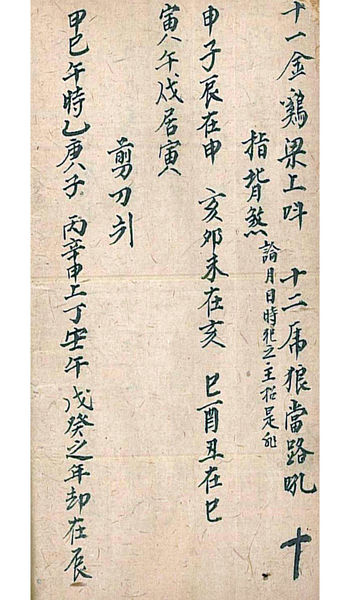 十一金鷄梁上呌 十二虎狼當路吼 十
指背煞 論月日時犯之主招是非
申子辰在申 亥卯未在亥 巳酉丑在巳
寅午戌居寅
剪刀
甲巳午時乙庚子 丙辛申上丁壬午 戊癸之年却在辰